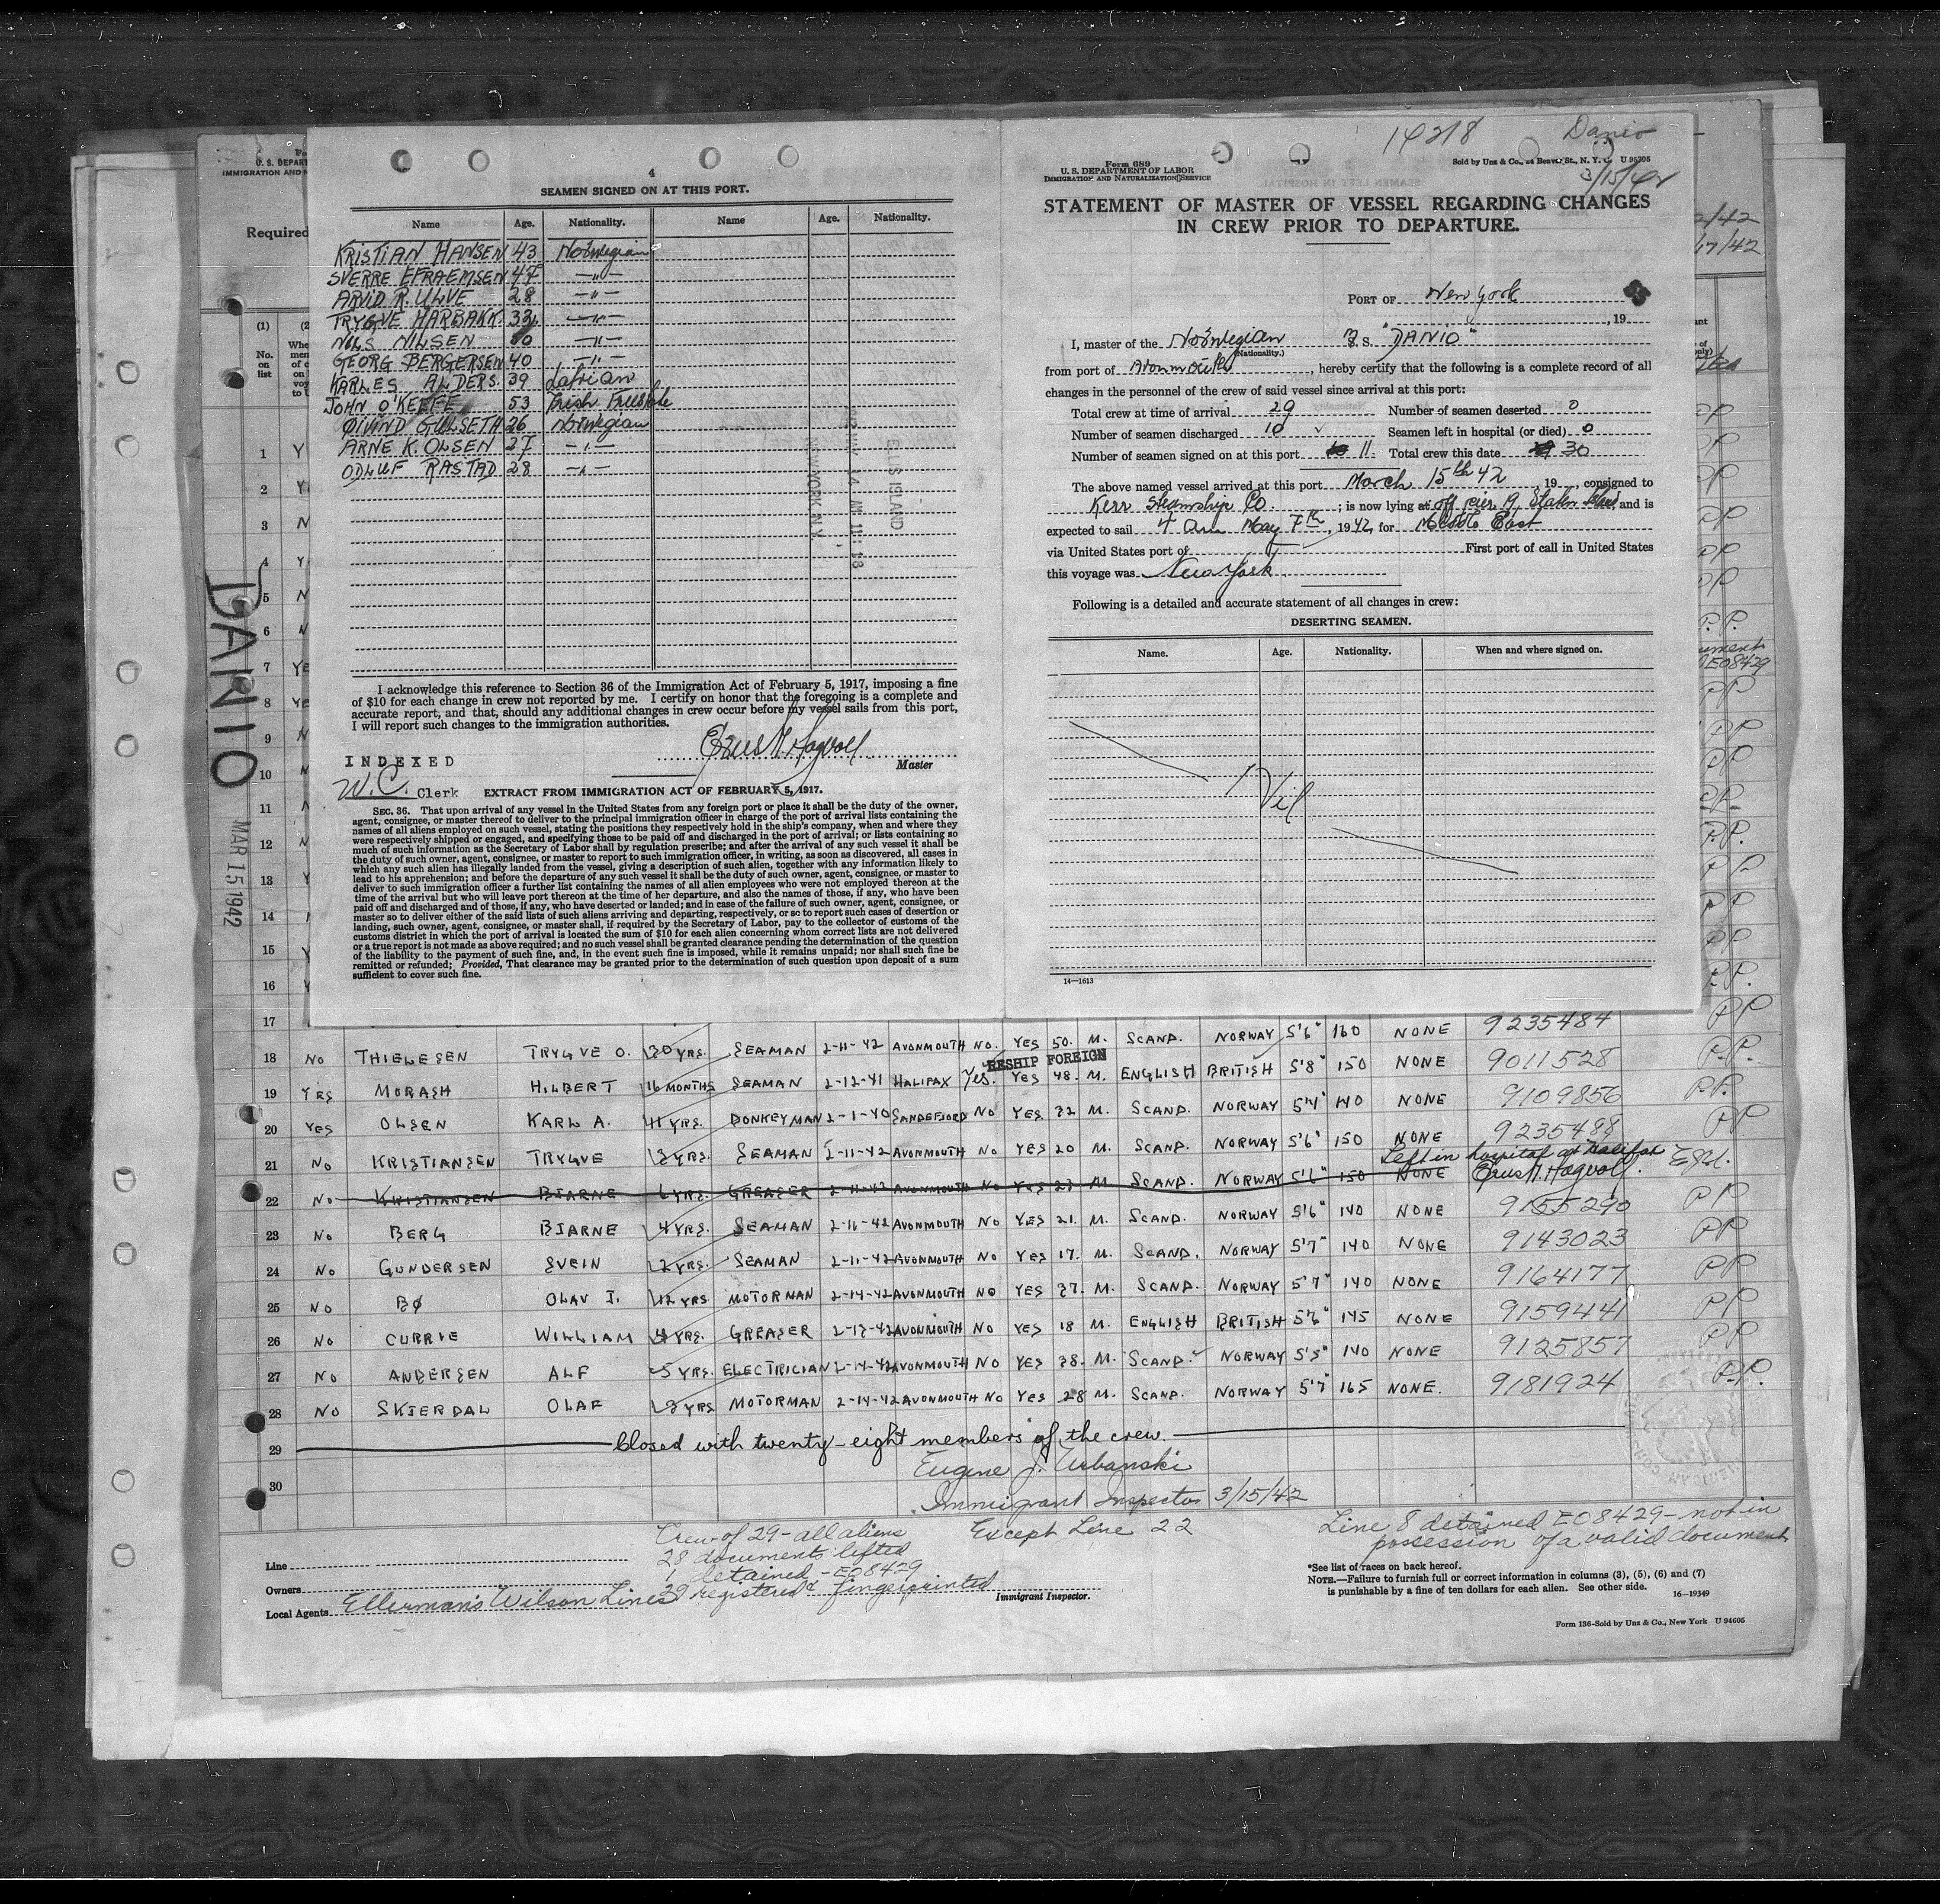 4
SEAMEN SIGNED ON AT THIS PORT.
Name Age. Nationality. Name Age. Nationality.
KRISTIAN HANSEN 43 Norwegian
SVERRE EFRAEMSEN 47 —"—
ARVID R. ULVE 28 —"—
TRYGVE HARBAKK —"—
NILS NILSEN —"—
GEORG BERGERSEN 40 —"—
KARLES ALDERS. 39 Latvian
JOHN O'KEEFE 53 Irish
ØIVIND GULSETH 26 Norwegian
ARNE K. OLSEN 27 —"—
ODLUF RASTAD 28 —"—
ELLIS ISLAND
NEW YORK, N.Y.
I acknowledge this reference to Section 36 of the Immigration Act of February 5, 1917, imposing a fine
of $10 for each change in crew not reported by me. I certify on honor that the foregoing is a complete and
accurate report, and that, should any additional changes in crew occur before my vessel sails from this port,
I will report such changes to the immigration authorities.
INDEXED
Master
W.C. Clerk
EXTRACT FROM IMMIGRATION ACT OF FEBRUARY 5, 1917.
SEC. 36. That upon arrival of any vessel in the United States from any foreign port or place it shall be the duty of the owner,
agent, consignee, or master thereof to deliver to the principal immigration officer in charge of the port of arrival lists containing the
names of all aliens employed on such vessel, stating the positions they respectively hold in the ship's company, when and where they
were respectively shipped or engaged, and specifying those to be paid off and discharged in the port of arrival; or lists containing so
much of such information as the Secretary of Labor shall by regulation prescribe; and after the arrival of any such vessel it shall be
the duty of such owner, agent, consignee, or master to report to such immigration officer, in writing, as soon as discovered, all cases in
which any such alien has illegally landed from the vessel, giving a description of such alien, together with any information likely to
lead to his apprehension; and before the departure of any such vessel it shall be the duty of such owner, agent, consignee, or master to
deliver to such immigration officer a further list containing the names of all alien employees who were not employed thereon at the
time of the arrival but who will leave port thereon at the time of her departure, and also the names of those, if any, who have been
paid off and discharged and of those, if any, who have deserted or landed; and in case of the failure of such owner, agent, consignee, or
master so to deliver either of the said lists of such aliens arriving and departing, respectively, or so to report such cases of desertion or
landing, such owner, agent, consignee, or master shall, if required by the Secretary of Labor, pay to the collector of customs of the
customs district in which the port of arrival is located the sum of $10 for each alien concerning whom correct lists are not delivered
or a true report is not made as above required; and no such vessel shall be granted clearance pending the determination of the question
of the liability to the payment of such fine, and, in the event such fine is imposed, while it remains unpaid; nor shall such fine be
remitted or refunded; Provided, That clearance may be granted prior to the determination of such question upon deposit of a sum
sufficient to cover such fine.
14218 Danio
3/15/42
Form 689
U. S. DEPARTMENT OF LABOR
IMMIGRATION AND NATURALIZATION SERVICE
Sold by Unz & Co., 24 Beaver St., N. Y. C. U 95305
STATEMENT OF MASTER OF VESSEL REGARDING CHANGES
IN CREW PRIOR TO DEPARTURE.
PORT OF New York
, 19
I, master of the Norwegian M. S. "DANIO"
(Nationality.)
from port of Avonmouth, hereby certify that the following is a complete record of all
changes in the personnel of the crew of said vessel since arrival at this port:
Total crew at time of arrival 29 Number of seamen deserted 0
Number of seamen discharged 10 Seamen left in hospital (or died) 0
Number of seamen signed on at this port 11. Total crew this date 30
The above named vessel arrived at this port March 15th 42, 19 , consigned to
Kerr Steamship Co. ; is now lying at off pier 19, Staten Island and is
expected to sail 4 am May 7th, 1942, for Middle East
via United States port of First port of call in United States
this voyage was New York.
Following is a detailed and accurate statement of all changes in crew:
DESERTING SEAMEN.
Name. Age. Nationality. When and where signed on.
14—1613
DANIO
MAR 15 1942
U. S. DEPART
IMMIGRATION AND N
Required
(1)
No.
on
list
1 Y
2 Y
3 N
4 Y
5 N
6 N
7 YE
8 YE
9 N
10 N
11
12
13
14
15
16
17
5'6" 160 NONE 9235484 PP
18 NO THIELESEN TRYGVE O. 30 YRS. SEAMAN 2-11-42 AVONMOUTH NO. YES 50. M. SCAND. NORWAY 5'8" 150 NONE 9011528 P.P.
RESHIP FOREIGN
19 YES MORASH HILBERT 16 MONTHS SEAMAN 2-12-41 HALIFAX Yes. YES 48. M. ENGLISH BRITISH 5'8" 150 NONE 9109856 P.P.
20 YES OLSEN KARL A. 41 YRS. DONKEYMAN 2-1-40 SANDEFJORD NO YES M. SCAND. NORWAY 140 NONE 9235488 PP
21 NO KRISTIANSEN TRYGVE 3 YRS. SEAMAN 2-11-42 AVONMOUTH NO YES 20 M. SCAND. NORWAY 5'6" 150 NONE
Left in hospital at Halifax
22 NO KRISTIANSEN BJARNE 6 YRS. GREASER 2-11-42 AVONMOUTH NO YES M. SCAND. NORWAY 5'6" 150 NONE
23 NO BERG BJARNE 4 YRS. SEAMAN 2-11-42 AVONMOUTH NO YES 21. M. SCAND. NORWAY 5'6" 140 NONE 9155290 PP
24 NO GUNDERSEN SVEIN 2 YRS. SEAMAN 2-11-42 AVONMOUTH NO YES 17. M. SCAND. NORWAY 5'7" 140 NONE 9143023 PP
25 NO BØ OLAV I. 12 YRS MOTORMAN 2-14-42 AVONMOUTH NO YES 37. M. SCAND. NORWAY 5'7" 140 NONE 9164177 PP
26 NO CURRIE WILLIAM 4 YRS. GREASER 2-13-42 AVONMOUTH NO YES 18 M. ENGLISH BRITISH 5'6 145 NONE 9159441 PP
27 NO ANDERSEN ALF 5 YRS. ELECTRICIAN 2-14-42 AVONMOUTH NO YES 38. M. SCAND. NORWAY 5'5" 140 NONE 9125857 PP
28 NO SKJERDAL OLAF 3 YRS MOTORMAN 2-14-42 AVONMOUTH NO YES 28 M. SCAND. NORWAY 5'7" 165 NONE. 9181924 P.P.
29 Closed with twenty-eight members of the crew.
Eugene J. Urbanski
30 Immigrant Inspector 3/15/42
Crew of 29 - all aliens Except Line 22
28 documents lifted
1 detained - E08429
29 registered & fingerprinted
Line 8 detained E08429 - not in
possession of a valid document
Line
Owners
Local Agents Ellerman's Wilson Lines
Immigrant Inspector.
*See list of races on back hereof.
NOTE.—Failure to furnish full or correct information in columns (3), (5), (6) and (7)
is punishable by a fine of ten dollars for each alien. See other side.
16—19349
Form 136-Sold by Unz & Co., New York U 94605